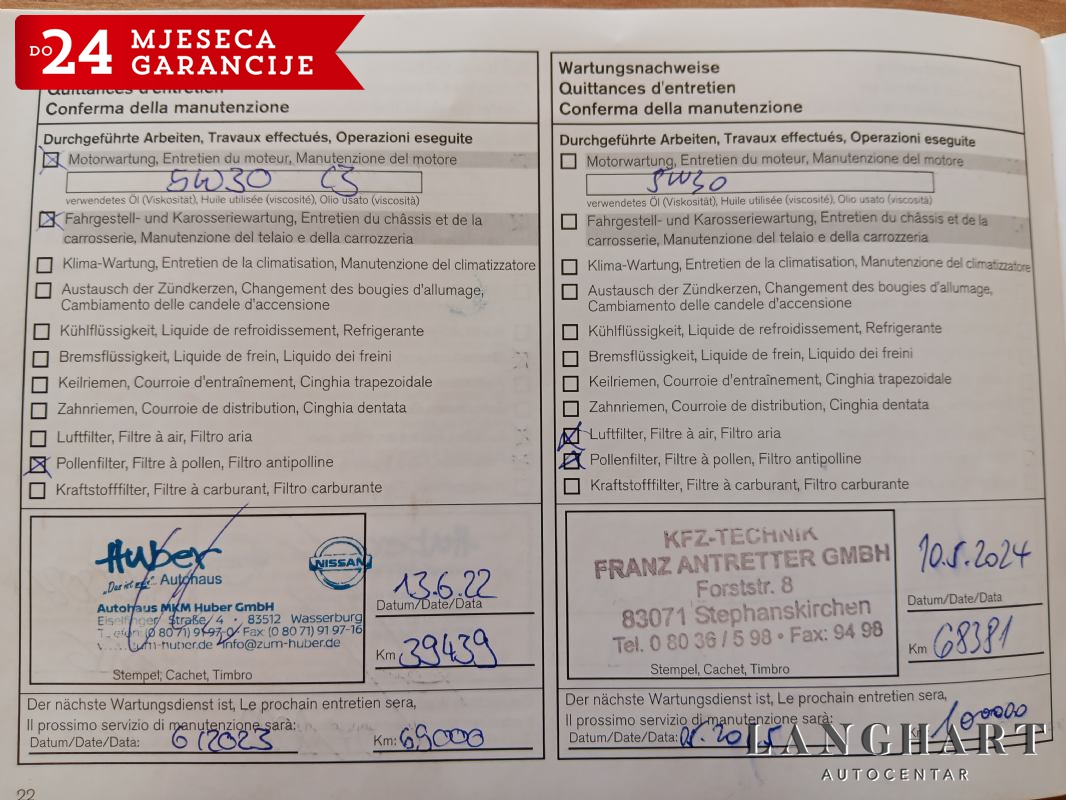 DO 24 MJESECA
GARANCIJE
Quittances d'entretien
Conferma della manutenzione
Durchgeführte Arbeiten, Travaux effectués, Operazioni eseguite
Motorwartung, Entretien du moteur, Manutenzione del motore
5W30 C3
verwendetes Öl (Viskosität), Huile utilisée (viscosité), Olio usato (viscosità)
Fahrgestell- und Karosseriewartung, Entretien du châssis et de la
carrosserie, Manutenzione del telaio e della carrozzeria
Klima-Wartung, Entretien de la climatisation, Manutenzione del climatizzatore
Austausch der Zündkerzen, Changement des bougies d'allumage,
Cambiamento delle candele d'accensione
Kühlflüssigkeit, Liquide de refroidissement, Refrigerante
Bremsflüssigkeit, Liquide de frein, Liquido dei freini
Keilriemen, Courroie d'entraînement, Cinghia trapezoidale
Zahnriemen, Courroie de distribution, Cinghia dentata
Luftfilter, Filtre à air, Filtro aria
Pollenfilter, Filtre à pollen, Filtro antipolline
Kraftstofffilter, Filtre à carburant, Filtro carburante
Huber
Autohaus
NISSAN
Autohaus MKM Huber GmbH
Eiselfinger Straße 4 · 83512 Wasserburg
(0 80 71) 91 97-0 Fax: (0 80 71) 91 97-16
zum-huber.de info@zum-huber.de
Stempel, Cachet, Timbro
13.6.22
Datum/Date/Data
Km 39439
Der nächste Wartungsdienst ist, Le prochain entretien sera,
Il prossimo servizio di manutenzione sarà:
Datum/Date/Data: 6/2023 Km: 69000
22
Wartungsnachweise
Quittances d'entretien
Conferma della manutenzione
Durchgeführte Arbeiten, Travaux effectués, Operazioni eseguite
Motorwartung, Entretien du moteur, Manutenzione del motore
5W30
verwendetes Öl (Viskosität), Huile utilisée (viscosité), Olio usato (viscosità)
Fahrgestell- und Karosseriewartung, Entretien du châssis et de la
carrosserie, Manutenzione del telaio e della carrozzeria
Klima-Wartung, Entretien de la climatisation, Manutenzione del climatizzatore
Austausch der Zündkerzen, Changement des bougies d'allumage,
Cambiamento delle candele d'accensione
Kühlflüssigkeit, Liquide de refroidissement, Refrigerante
Bremsflüssigkeit, Liquide de frein, Liquido dei freini
Keilriemen, Courroie d'entraînement, Cinghia trapezoidale
Zahnriemen, Courroie de distribution, Cinghia dentata
Luftfilter, Filtre à air, Filtro aria
Pollenfilter, Filtre à pollen, Filtro antipolline
Kraftstofffilter, Filtre à carburant, Filtro carburante
KFZ-TECHNIK
FRANZ ANTRETTER GMBH
Forststr. 8
83071 Stephanskirchen
Tel. 0 80 36 / 5 98 • Fax: 94 98
Stempel, Cachet, Timbro
10.5.2024
Datum/Date/Data
Km 68381
Der nächste Wartungsdienst ist, Le prochain entretien sera,
Il prossimo servizio di manutenzione sarà:
Datum/Date/Data: 05.2025 Km 100000
LANGHART
AUTOCENTAR